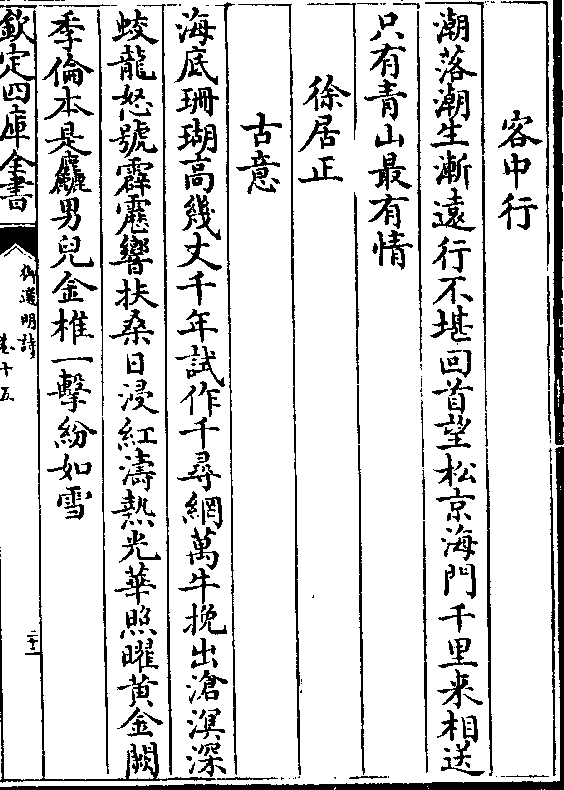 客中行
潮落潮生漸遠行不堪回首望松京海門千里来相送
只有青山最有情
徐居正
古意
海底珊瑚高幾丈千年試作千尋網萬牛挽出滄溟深
蛟龍怒號霹靂響扶桑日浸紅濤熱光華照曜黄金闕
季倫本是麤男兒金椎一擊紛如雪
欽定四庫全書
御選明詩
卷十五
二十二